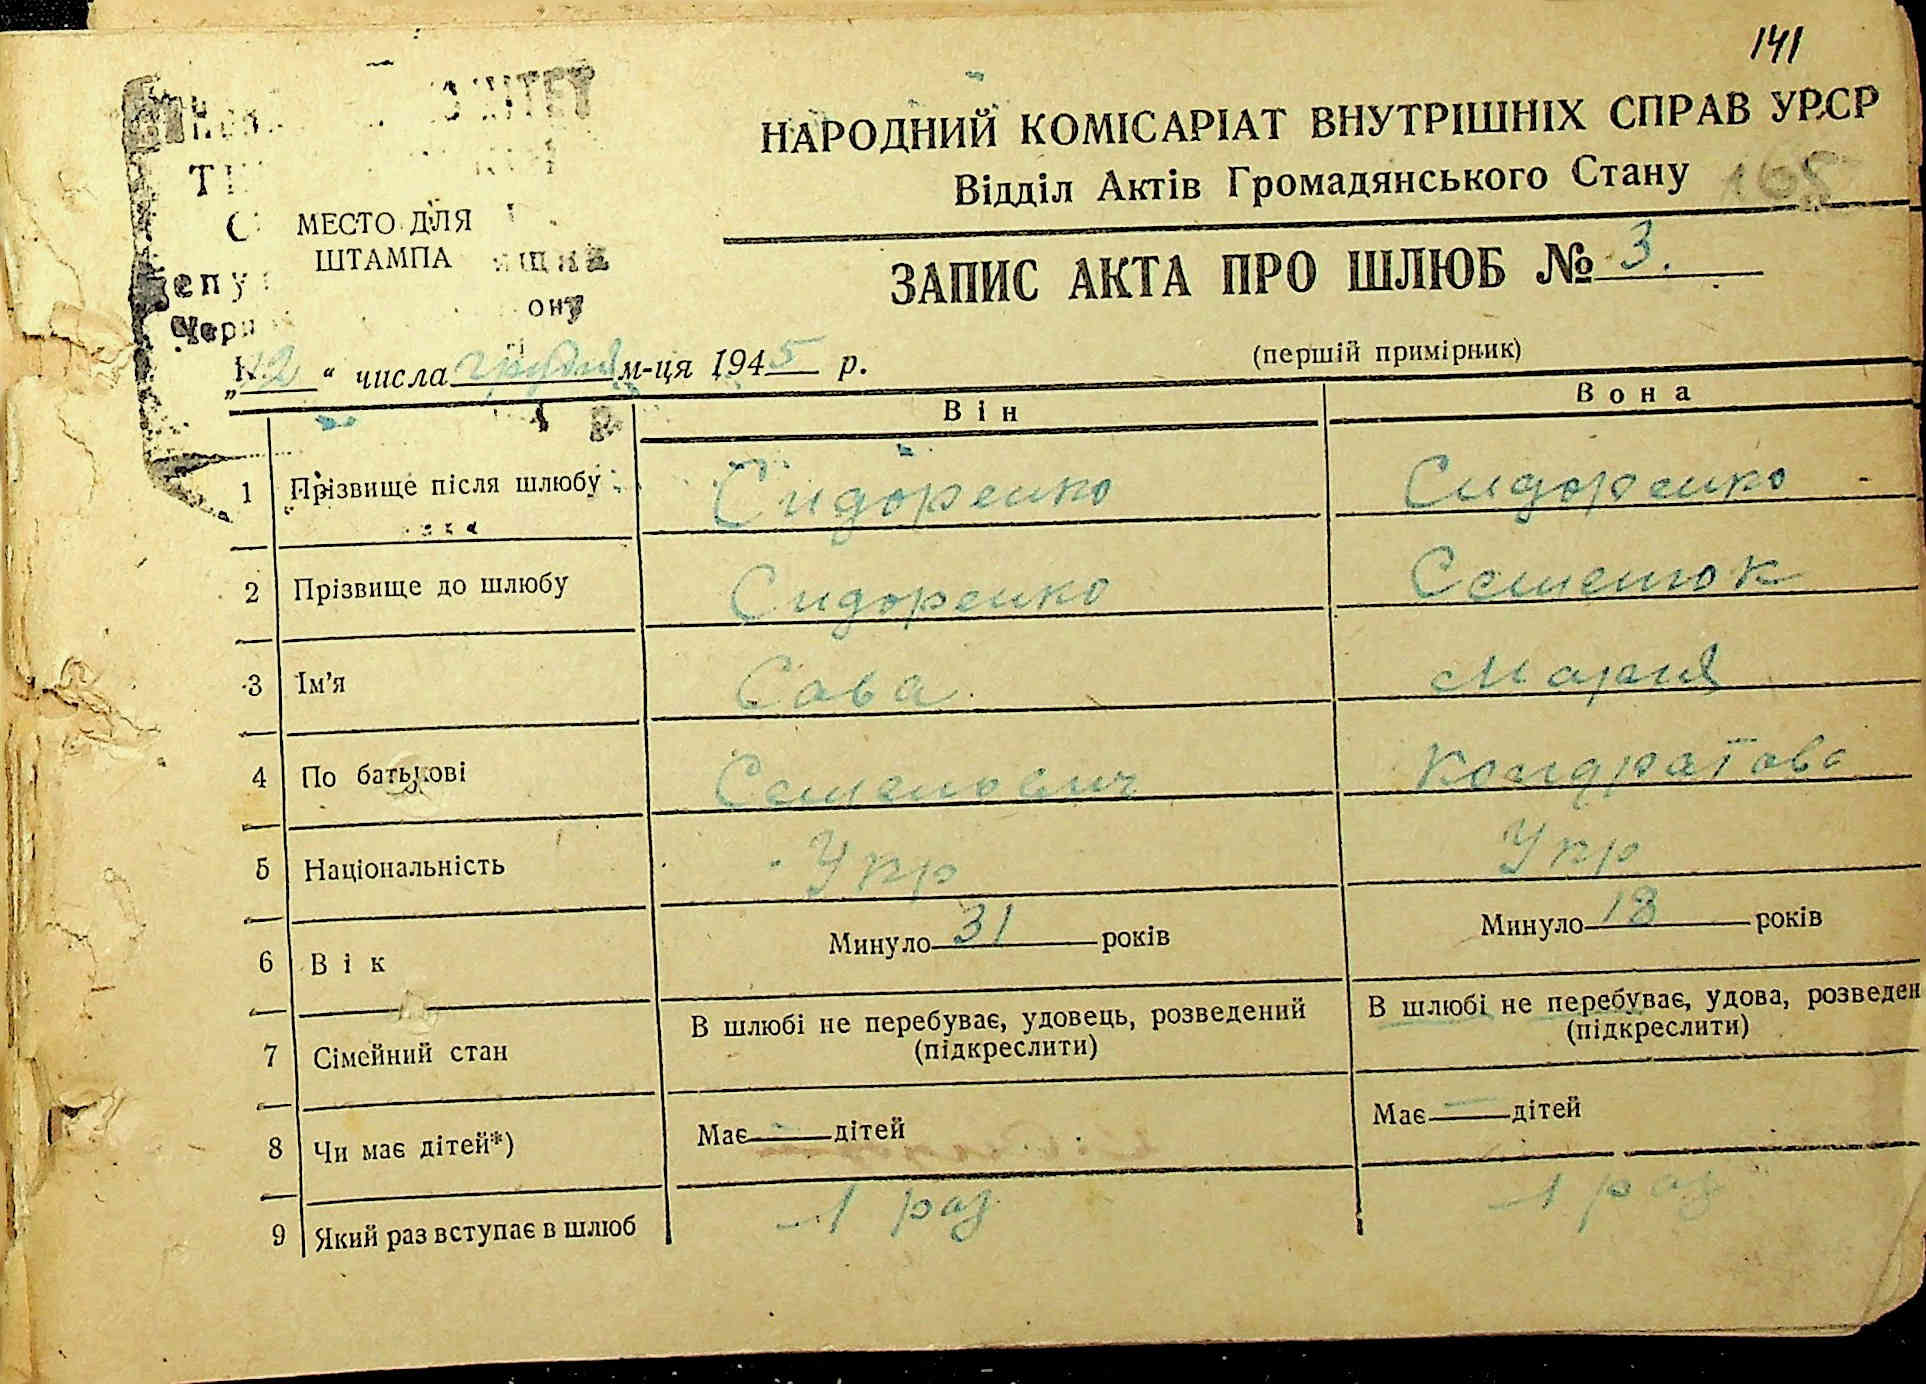 141
НАРОДНИЙ КОМІСАРІАТ ВНУТРІШНІХ СПРАВ УРСР
Відділ Актів Громадянського Стану
МЕСТО ДЛЯ
ШТАМПА
ЗАПИС АКТА ПРО ШЛЮБ № 3.
(перший примірник)
" числа грудня м-ця 1945 р.
Він Вона
1 Прізвище після шлюбу Сидоренко Сидоренко
2 Прізвище до шлюбу Сидоренко Семенюк
3 Ім'я Сава Мария
4 По батькові Семенович Кондратова
5 Національність Укр Укр
6 Вік Минуло 31 років Минуло 18 років
7 Сімейний стан В шлюбі не перебуває, удовець, розведений (підкреслити) В шлюбі не перебуває, удова, розведен (підкреслити)
8 Чи має дітей*) Має — дітей Має — дітей
9 Який раз вступає в шлюб 1 раз 1 раз